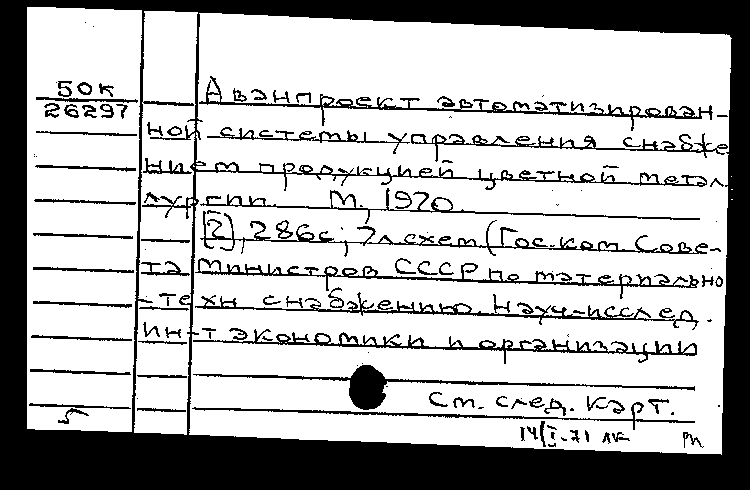 50к
26297
Аванпроект автоматизирован-
ной системы управления снабже
нием продукцией цветной метал
лургии. М., 1970.
[2], 286с; 7л схем (Гос. ком. Сове-
та Министров СССР по материально
-техн снабжению. Науч-исслед.
ин-т экономики и организации
См. след. карт.
14/I-71 лк